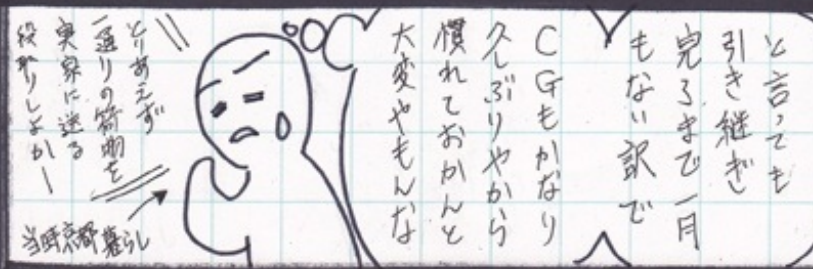 と言っても
引き継ぎ
完了まで一月
もない訳で
CGもかなり
久しぶりやから
慣れておかんと
大変やもんな
とりあえず
一通りの荷物を
実家に送る
段取りしよかー
当時京都暮らし